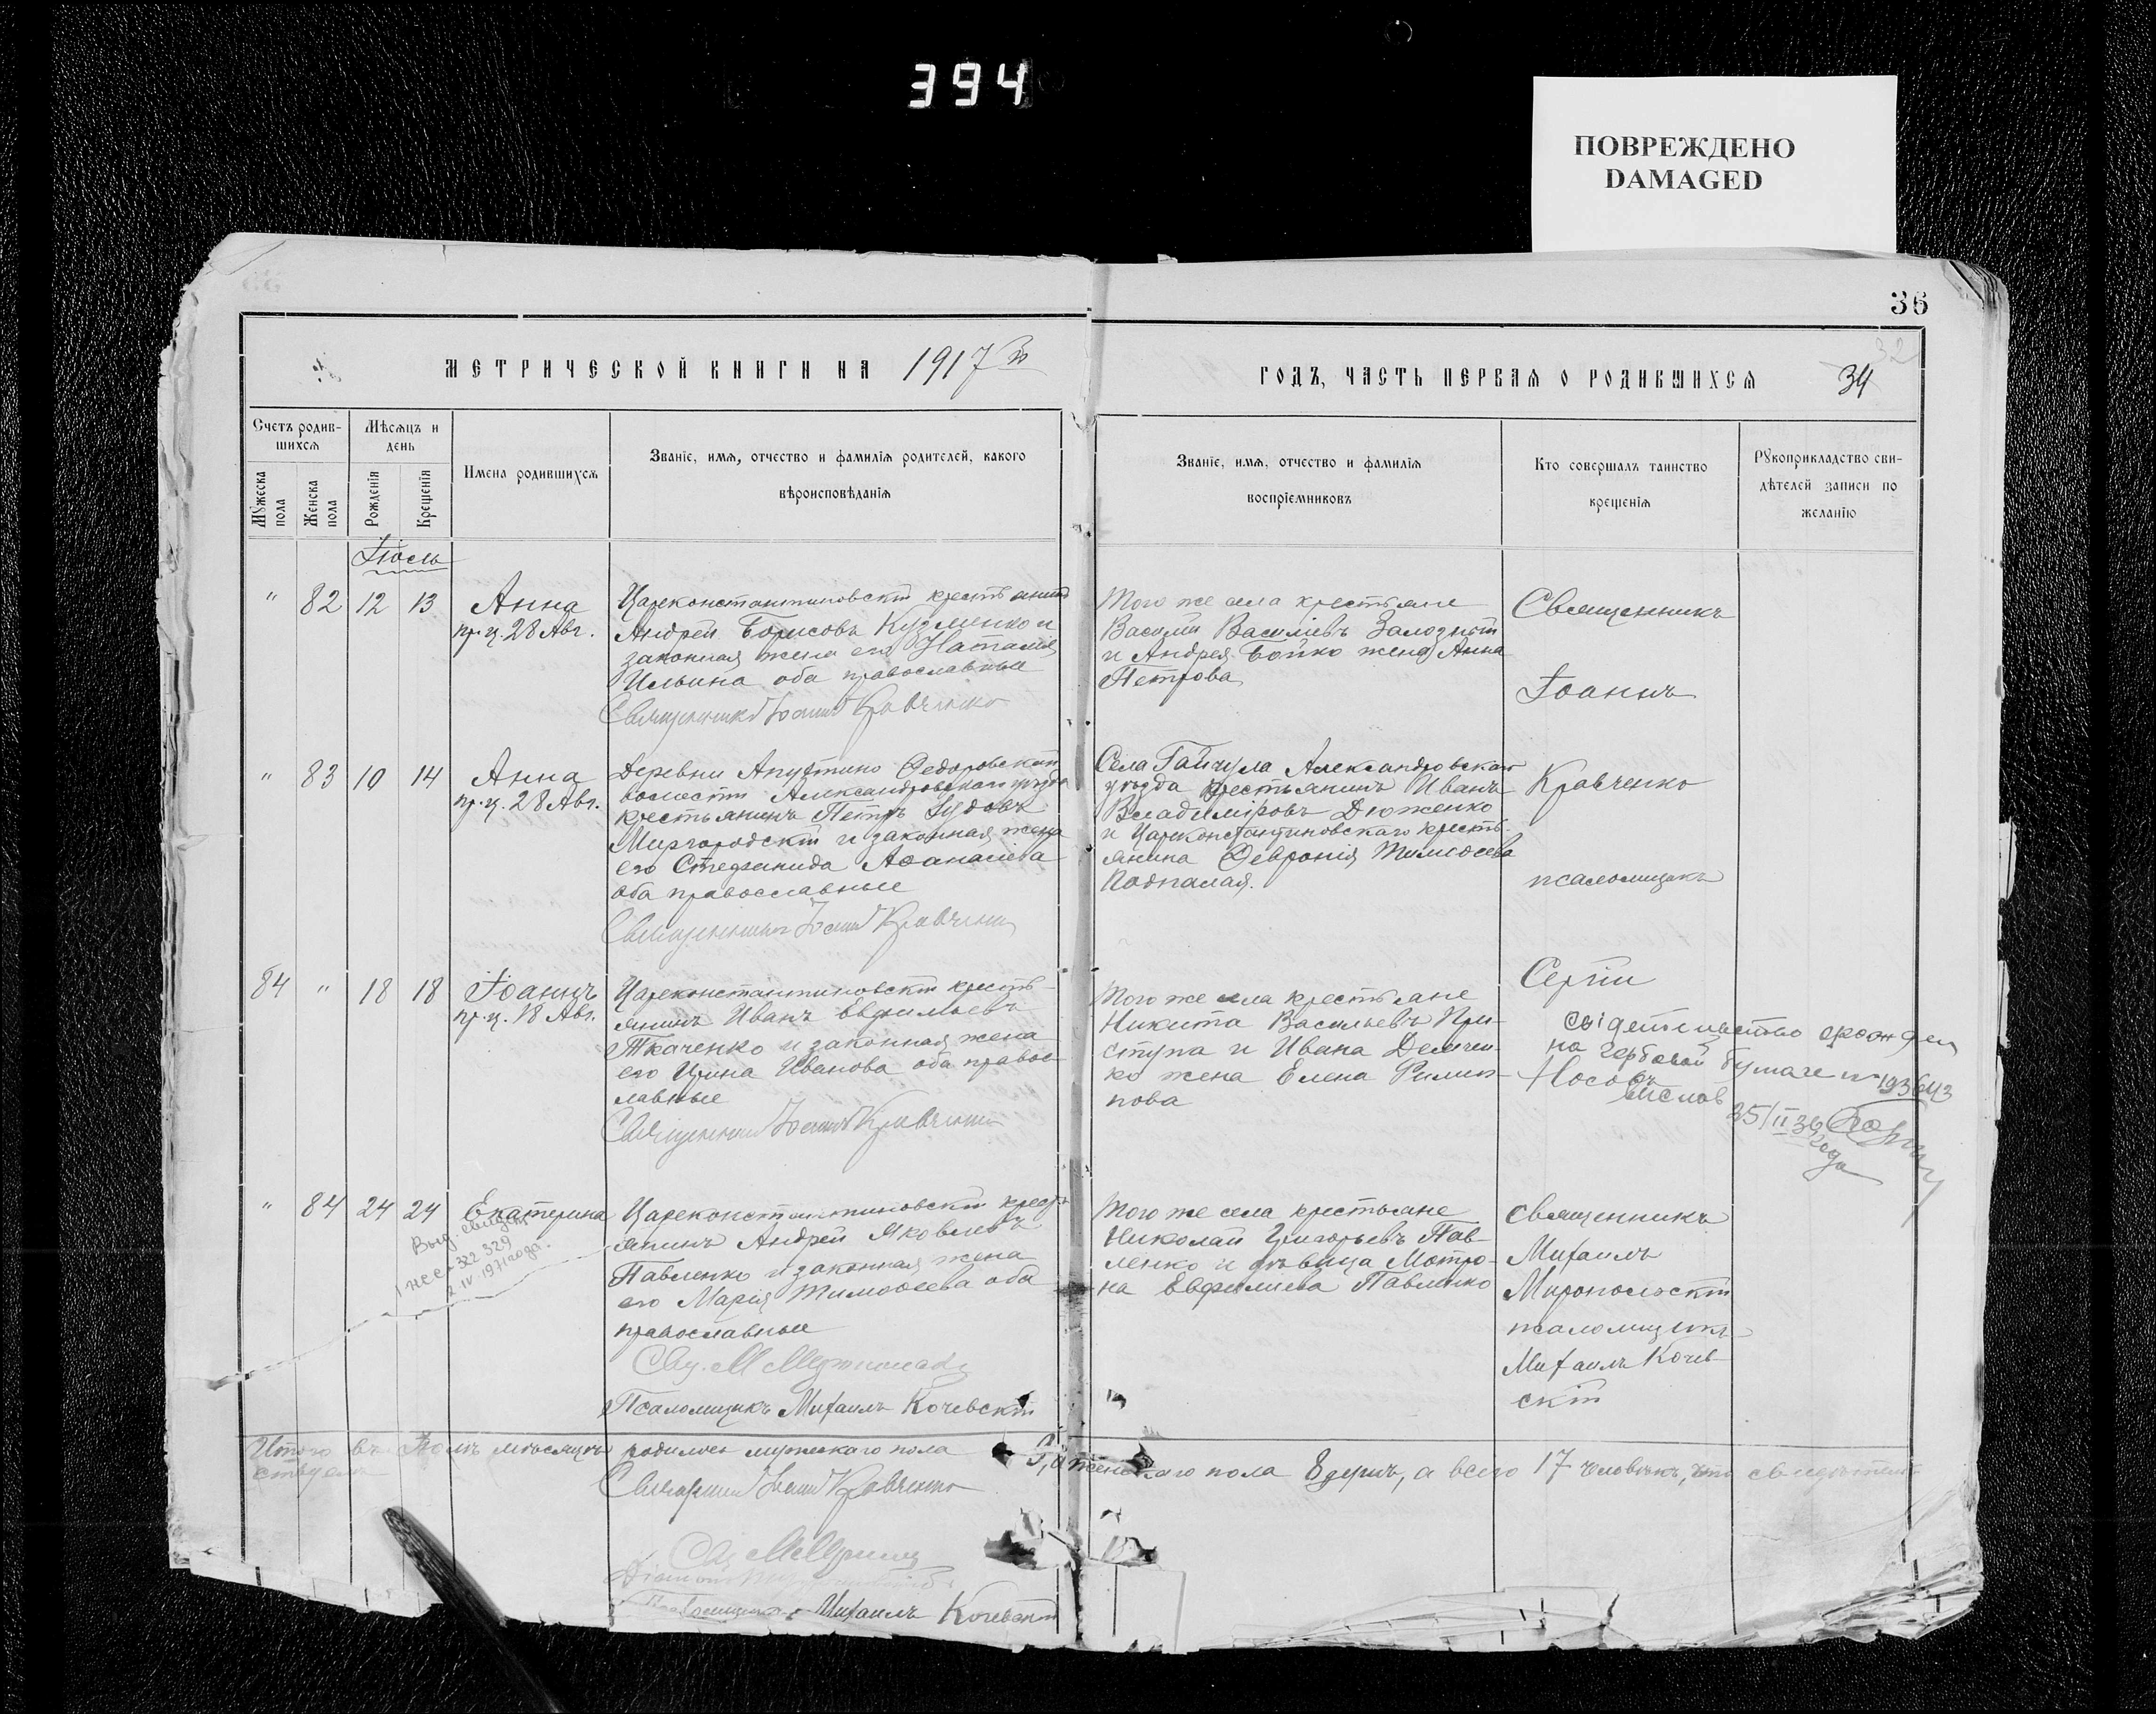 394
ПОВРЕЖДЕНО
DAMAGED
36
32
МЕТРИЧЕСКОЙ КНИГИ НА 1917й
ГОДЪ, ЧАСТЬ ПЕРВАЯ О РОДИВШИХСЯ
34
Счетъ родив-
шихся
Мужеска пола
Женска пола
Мѣсяцъ и
день
Рожденія
Крещенія
Имена родившихся
Званіе, имя, отчество и фамилія родителей, какого
вѣроисповѣданія
Званіе, имя, отчество и фамилія
воспріемниковъ
Кто совершалъ таинство
крещенія
Рукоприкладство сви-
дѣтелей записи по
желанію
Іюль
" 82 12 13
Анна
пр. ц. 28 Авг.
Цареконстантиновскій крестьянинъ
Андрей Борисовъ Кузменко и
законная жена его Наталія
Ильина оба православные
Священникъ Іоаннъ Кравченко
Того же села крестьяне
Василій Василіевъ Залозный
и Андрея Бойко жена Анна
Петрова
Священникъ
Іоаннъ
" 83 10 14
Анна
пр. ц. 28 Авг.
Деревни Федоровской
волости Александровскаго уѣзда
крестьянинъ Петръ
Миргородскій и законная жена
его Стефанида Аѳанасіева
оба православные
Священникъ Іоаннъ Кравченко
Села Гайчула Александровскаго
уѣзда крестьянинъ Иванъ
Владиміровъ Дюженко
и Цареконстантиновскаго кресть-
янина Февронія Тимоѳеева
Подпалая.
Кравченко
псаломщикъ
84 " 18 18
Іоаннъ
пр. ц. 18 Авг.
Цареконстантиновскій кресть-
янинъ Иванъ Евфиміевъ
Ткаченко и законная жена
его Ирина Иванова оба правос-
лавные
Священникъ Іоаннъ Кравченко
Того же села крестьяне
Никита Васильевъ При-
ступа и Ивана Демчен-
ко жена Елена Филип-
пова
Сергій
Носовъ
на гербовой бумаге № 193643
" 84 24 24
Екатерина
Выд. свидет.
322 329
2 IV 1971 года.
Цареконстантиновскій крест-
янинъ Андрей Яковлевъ
Павленко и законная жена
его Марія Тимоѳеева оба
православные
Псаломщикъ Михаилъ Кочевскій
Того же села крестьяне
Николай Григорьевъ Пав-
ленко и дѣвица Мотро-
на Евфиміева Павленко
Священникъ
Михаилъ
Миропольскій
псаломщикъ
Михаилъ Кочев-
скій
Итого въ Іюлѣ мѣсяцѣ родилось мужескаго пола
женскаго пола 8 душъ, а всего 17 человѣкъ, что свидѣтель-
ствуемъ
Священникъ Іоаннъ Кравченко
Псаломщикъ Михаилъ Кочевскій